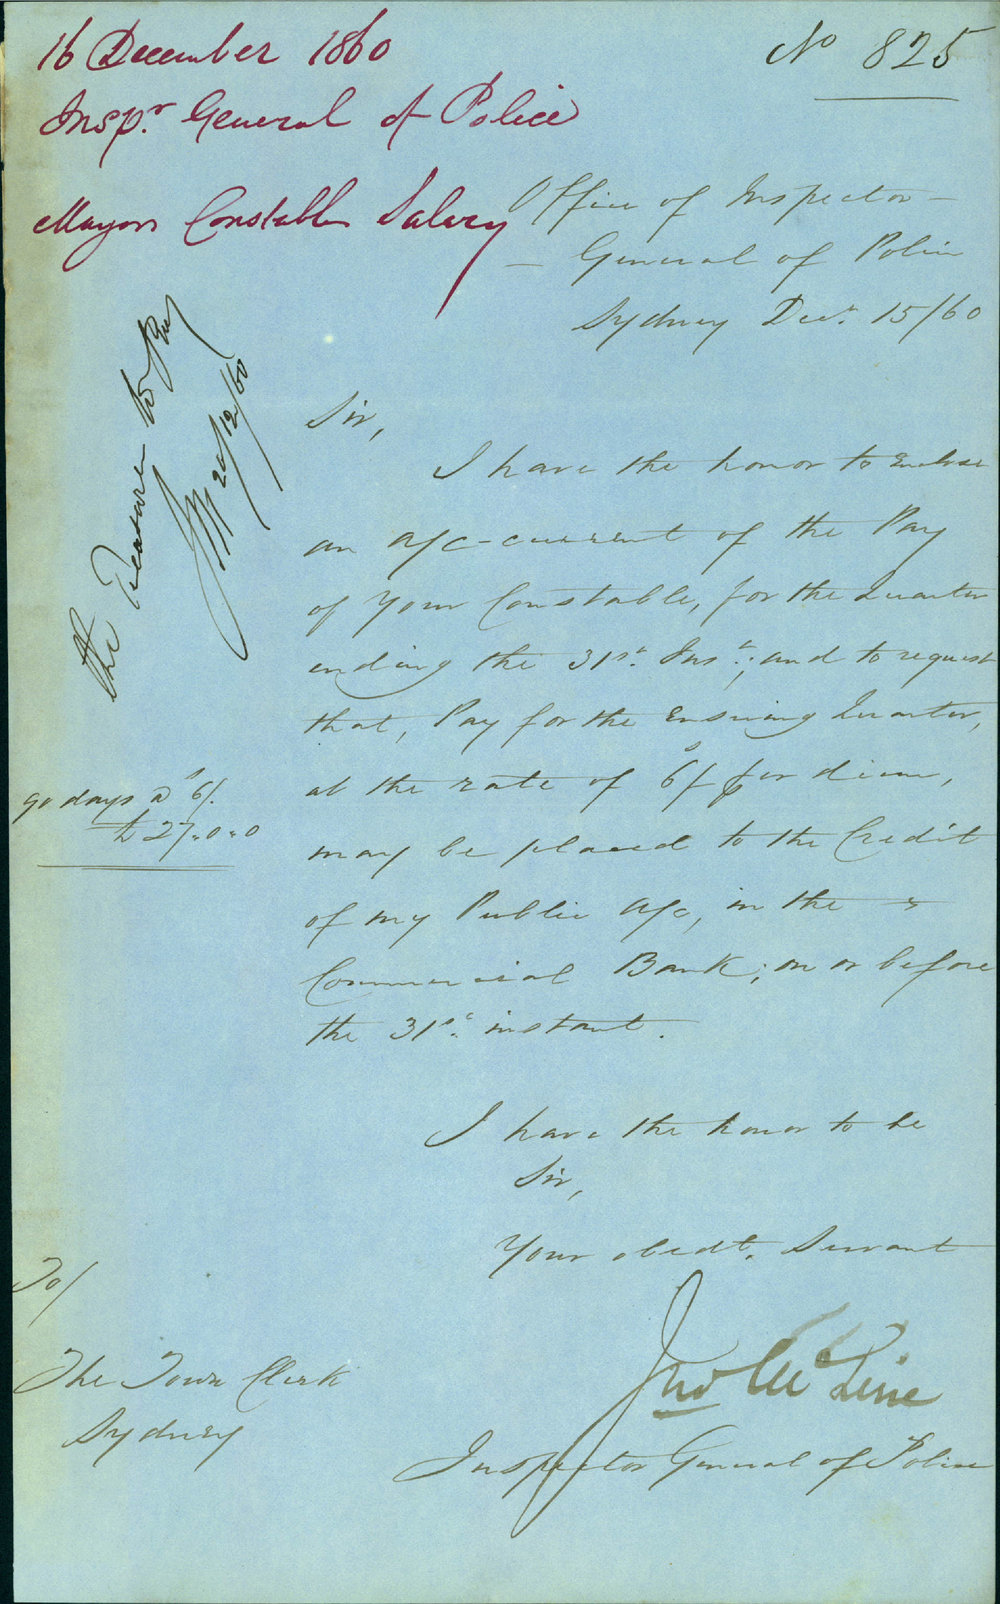 16 December 1860
No 825
Inspr. General of Police
Mayors Constables Salary
Office of Inspector-
- General of Police
Sydney Decr. 15/60
The Treasurer to Pay
20/12/60
Sir,
I have the honor to Enclose
an a/c-current of the Pay
of your Constable, for the Quarter
ending the 31st. Inst.; and to request
that, Pay for the Ensuing Quarter,
at the rate of 6s/ per diem,
90 days a 6s/.
£27.0.0
may be placed to the Credit
of my Public a/c, in the
Commercial Bank; on or before
the 31st. instant.
I have the honor to be
Sir,
Your obedt. Servant
Jno McLerie
Inspector General of Police
To/
The Town Clerk
Sydney